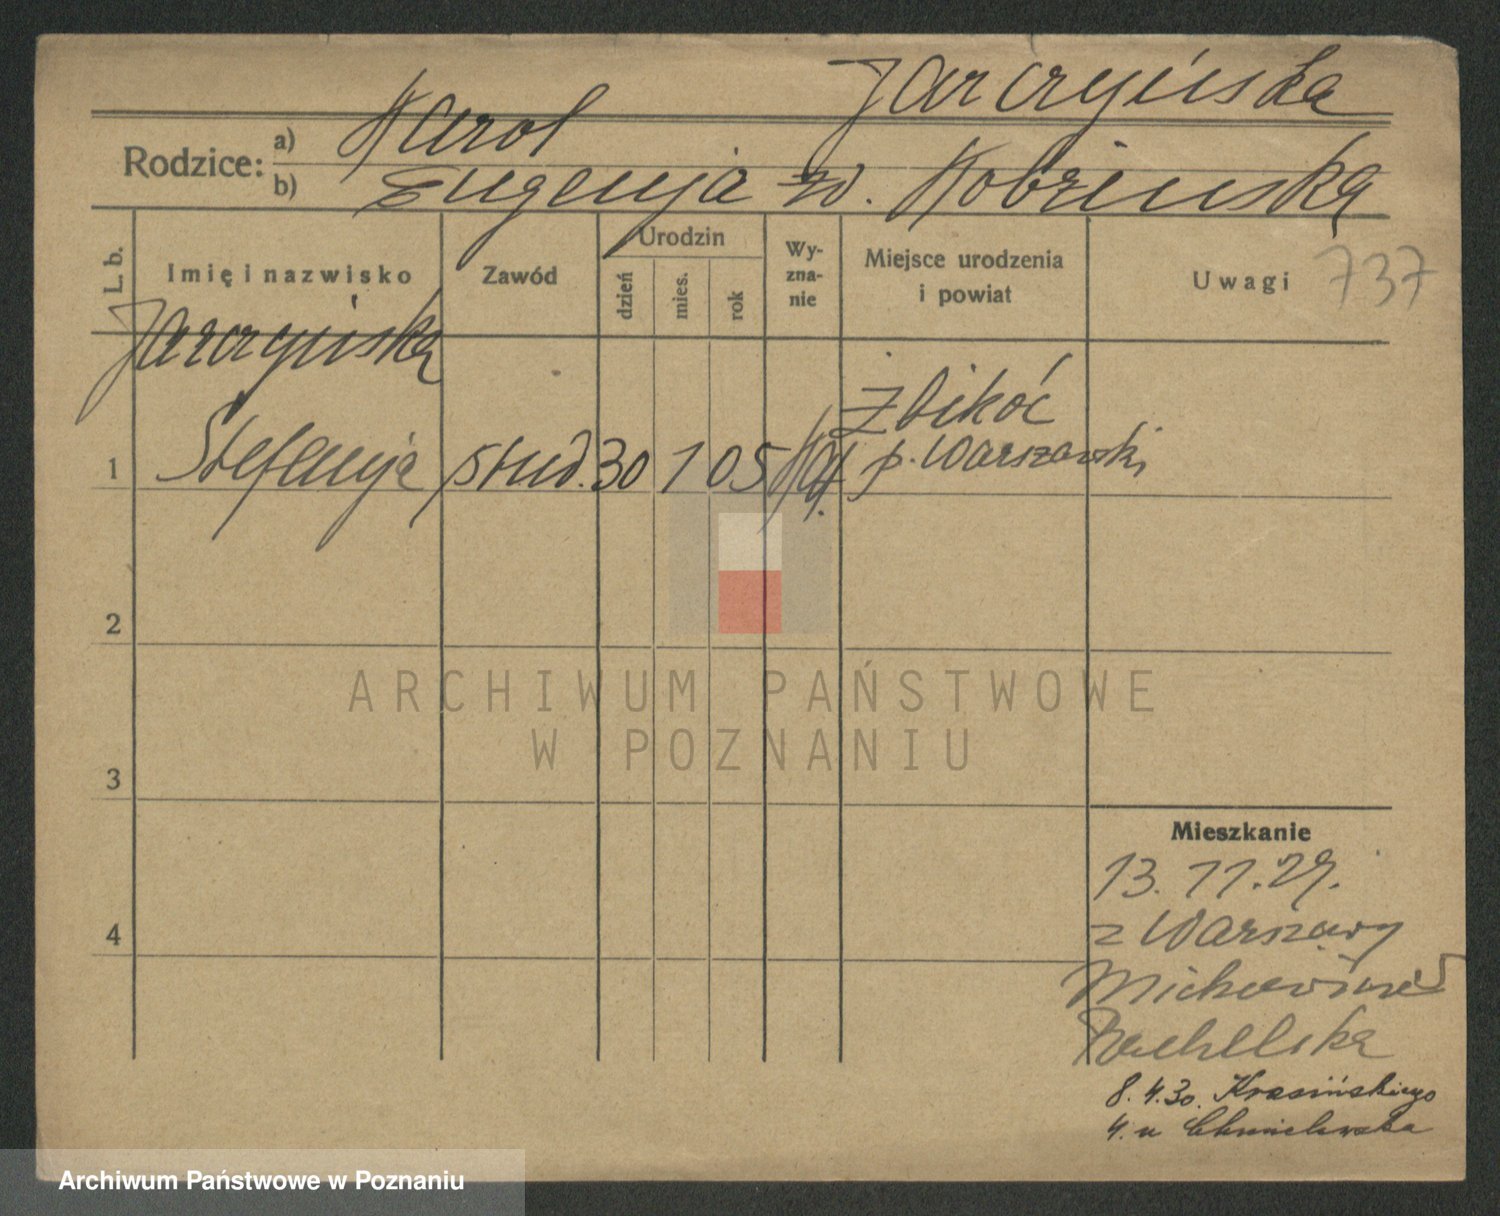 Jarczyńska
Rodzice: a) Karol
b) Eugenja zd. Kobrzeńska
L. b.
Imię i nazwisko
Zawód
Urodzin
dzień
mies.
rok
Wy-
zna-
nie
Miejsce urodzenia
i powiat
Uwagi
737
Jarczyńska
Żbikoć
p. Warszawski
1 Stefanja stud. 30 1 05 kat.
2
3
4
ARCHIWUM PAŃSTWOWE
W POZNANIU
Mieszkanie
13. 11. 29.
z Warszawy
8. 4. 30. Krasińskiego
4. u Chmielewska
Archiwum Państwowe w Poznaniu